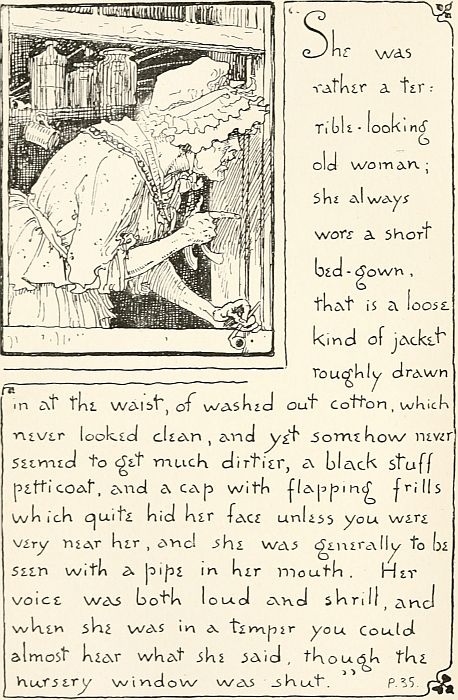 “She was
rather a ter:
rible-looking
old woman;
she always
wore a short
bed-gown,
that is a loose
kind of jacket
roughly drawn
in at the waist, of washed out cotton, which
never looked clean, and yet somehow never
seemed to get much dirtier, a black stuff
petticoat, and a cap with flapping frills
which quite hid her face unless you were
very near her, and she was generally to be
seen with a pipe in her mouth. Her
voice was both loud and shrill, and
when she was in a temper you could
almost hear what she said, though the
nursery window was shut.” P.35.